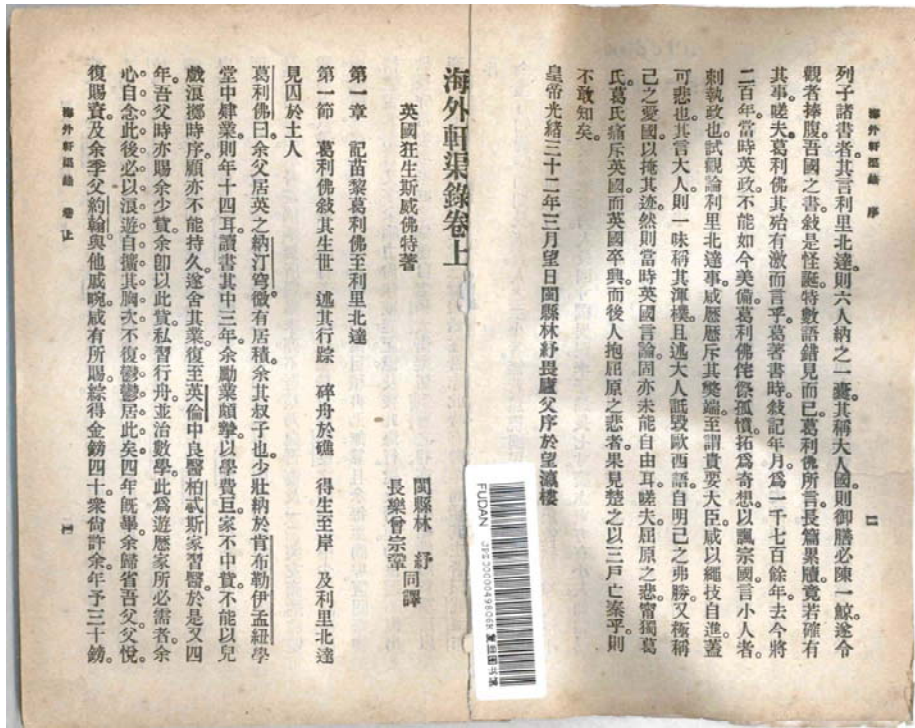 列子諸書者。其言利里北達。則六人納之一橐。其稱大人國。則御膳必陳一鯨。遂令
觀者捧腹。吾國之書。敍是怪誕。特數語錯見而已。葛利佛所言。長篇累牘。竟若確有
其事。嗟夫。葛利佛其殆有激而言乎。葛著書時。敍記年月。爲一千七百餘年。去今將
二百年。當時英政不能如今美備。葛利佛侘傺孤憤。拓爲奇想。以諷宗國。言小人者。
刺執政也。試觀論利里北達事。咸歷歷斥其獘端。至謂貴要大臣。咸以繩技自進。蓋
可悲也。其言大人。則一味稱其渾樸。且述大人詆毀歐西語。自明己之弗勝。又極稱
己之愛國。以掩其迹。然則當時英國言論。固亦未能自由耳。嗟夫。屈原之悲。甯獨葛
氏。葛氏痛斥英國。而英國卒興。而後人抱屈原之悲者。果見楚之以三戶亡秦乎。則
不敢知矣。
皇帝光緒三十二年三月望日閩縣林紓畏廬父序於望瀛樓
海外軒渠錄 序
二
海外軒渠錄卷上
英國狂生斯威佛特著
閩縣林 紓
長樂曾宗鞏
同譯
第一章 記苗黎葛利佛至利里北達
第一節 葛利佛敍其生世 述其行踪 碎舟於礁 得生至岸 及利里北達
見囚於土人
葛利佛曰。余父居英之納汀穹。微有居積。余其叔子也。少壯納於肯布勒伊孟紐學
堂中肄業。則年十四耳。讀書其中三年。余勵業頗摯。以學費巨。家不中貲。不能以兒
戲浪擲時序。顧亦不能持久。遂舍其業。復至英倫中良醫柏忒斯家習醫。於是又四
年。吾父時亦賜余少貲。余卽以此貲私習行舟。並治數學。此爲遊歷家所必需者。余
心自念此後必以浪遊自擴其胸次。不復鬱鬱居此矣。四年旣畢。余歸省吾父。父悅。
復賜賚。及余季父約翰與他戚畹。咸有所賜。綜得金鎊四十。衆尙許余年予三十鎊。
海外軒渠錄 卷上
一
FUDAN
复旦图书馆